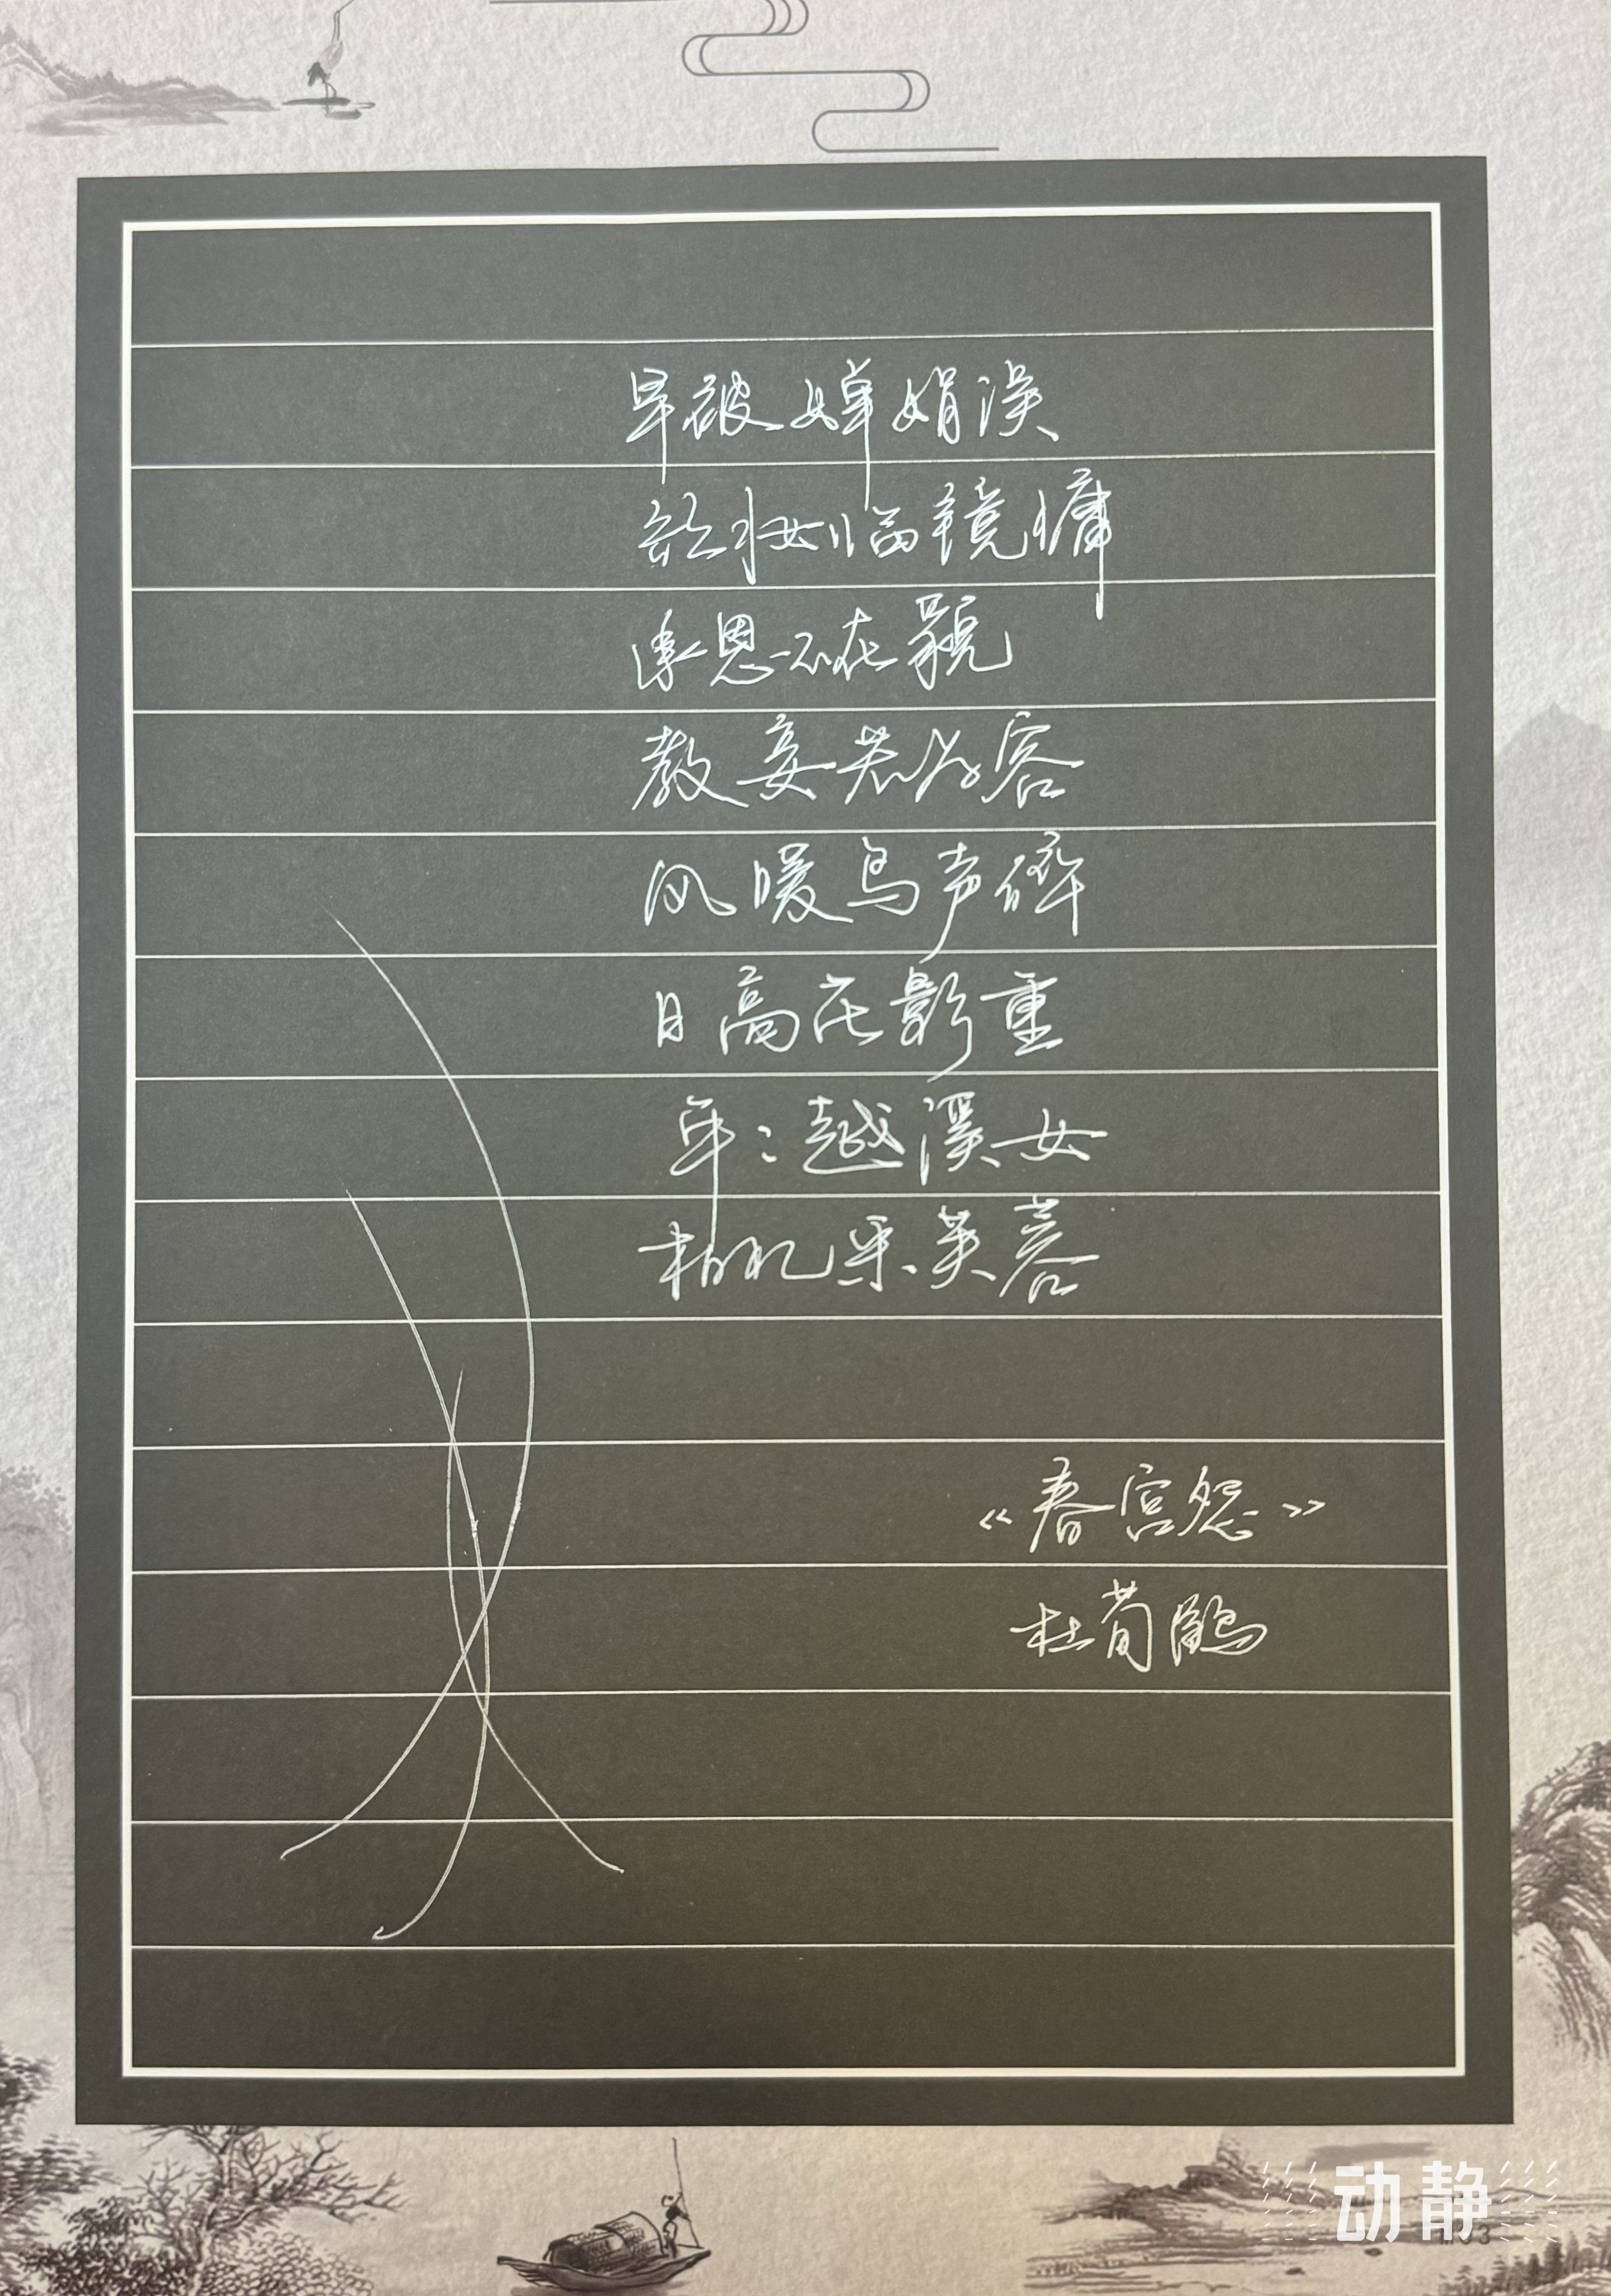 早被婵娟误
欲妆临镜慵
承恩不在貌
教妾若为容
风暖鸟声碎
日高花影重
年：越溪女
相忆采芙蓉
《春宫怨》
杜荀鹤
动静